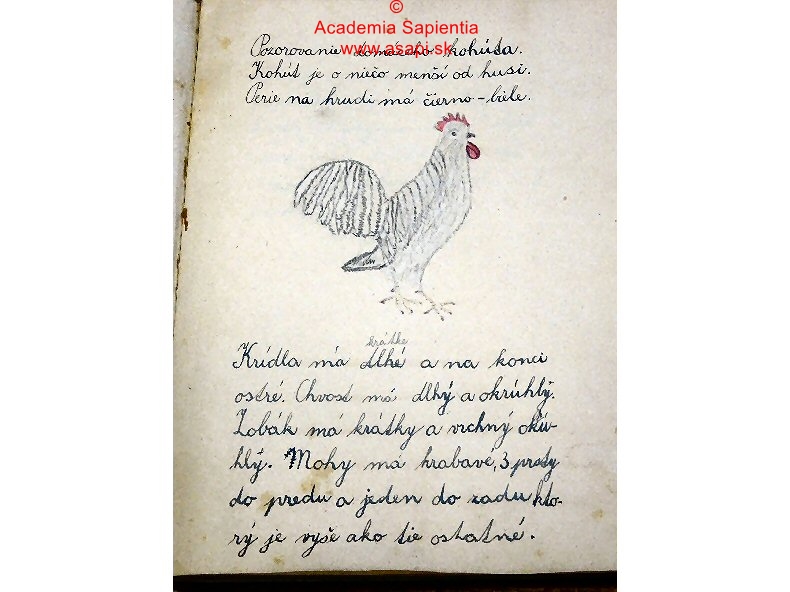 ©
Academia Sapientia
www.asapi.sk
Pozorovanie domáceho kohúta.
Kohút je o niečo menší od husi.
Perie na hrudi má čierno-biele.
krátke
Krídla má dlhé a na konci
ostré. Chvost má dlhý a okrúhlý.
Zobák má krátky a vrchný okrú-
hlý. Nohy má hrabavé, 3 prsty
do predu a jeden do zadu kto-
rý je vyše ako tie ostatné.